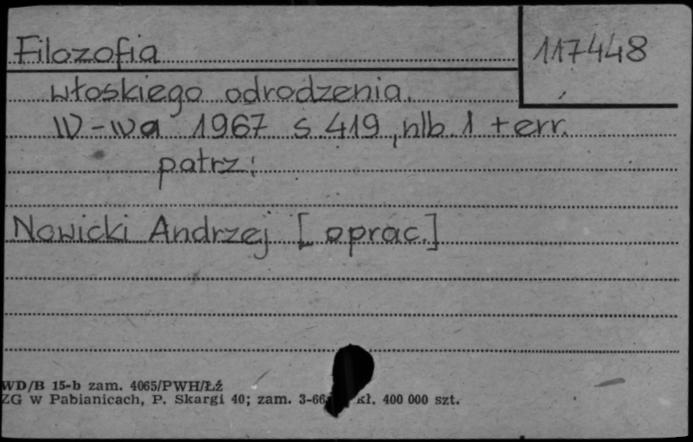 Filozofia 117448
włoskiego odrodzenia.
W-wa 1967 s 419, nlb. 1 + err.
patrz:
Nowicki Andrzej [oprac.]
WD/B 15-b zam. 4065/PWH/Łź
ZG w Pabianicach, P. Skargi 40; zam. 3-66 kł. 400 000 szt.